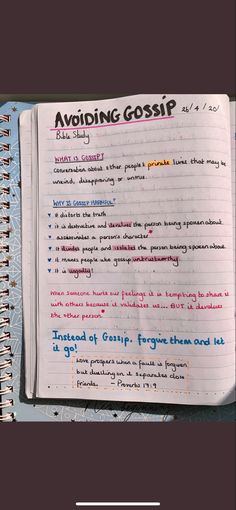 AVOIDING GOSSIP 26/4/20
Bible Study
WHAT IS GOSSIP?
Conversation about other people's private lives that may be
unkind, disapproving or untrue.
WHY IS GOSSIP HARMFUL?
it distorts the truth
it is destructive and devalues the person being spoken about
assassinates a person's character
it divides people and isolates the person being spoken about
it means people who gossip untrustworthy
it is ungodly!
When someone hurts our feelings it is tempting to share it
with others because it validates us... BUT it devalues
the other person
Instead of Gossip, forgive them and let
it go!
Love prospers when a fault is forgiven
but dwelling on it separates close
friends. - Proverbs 17:9